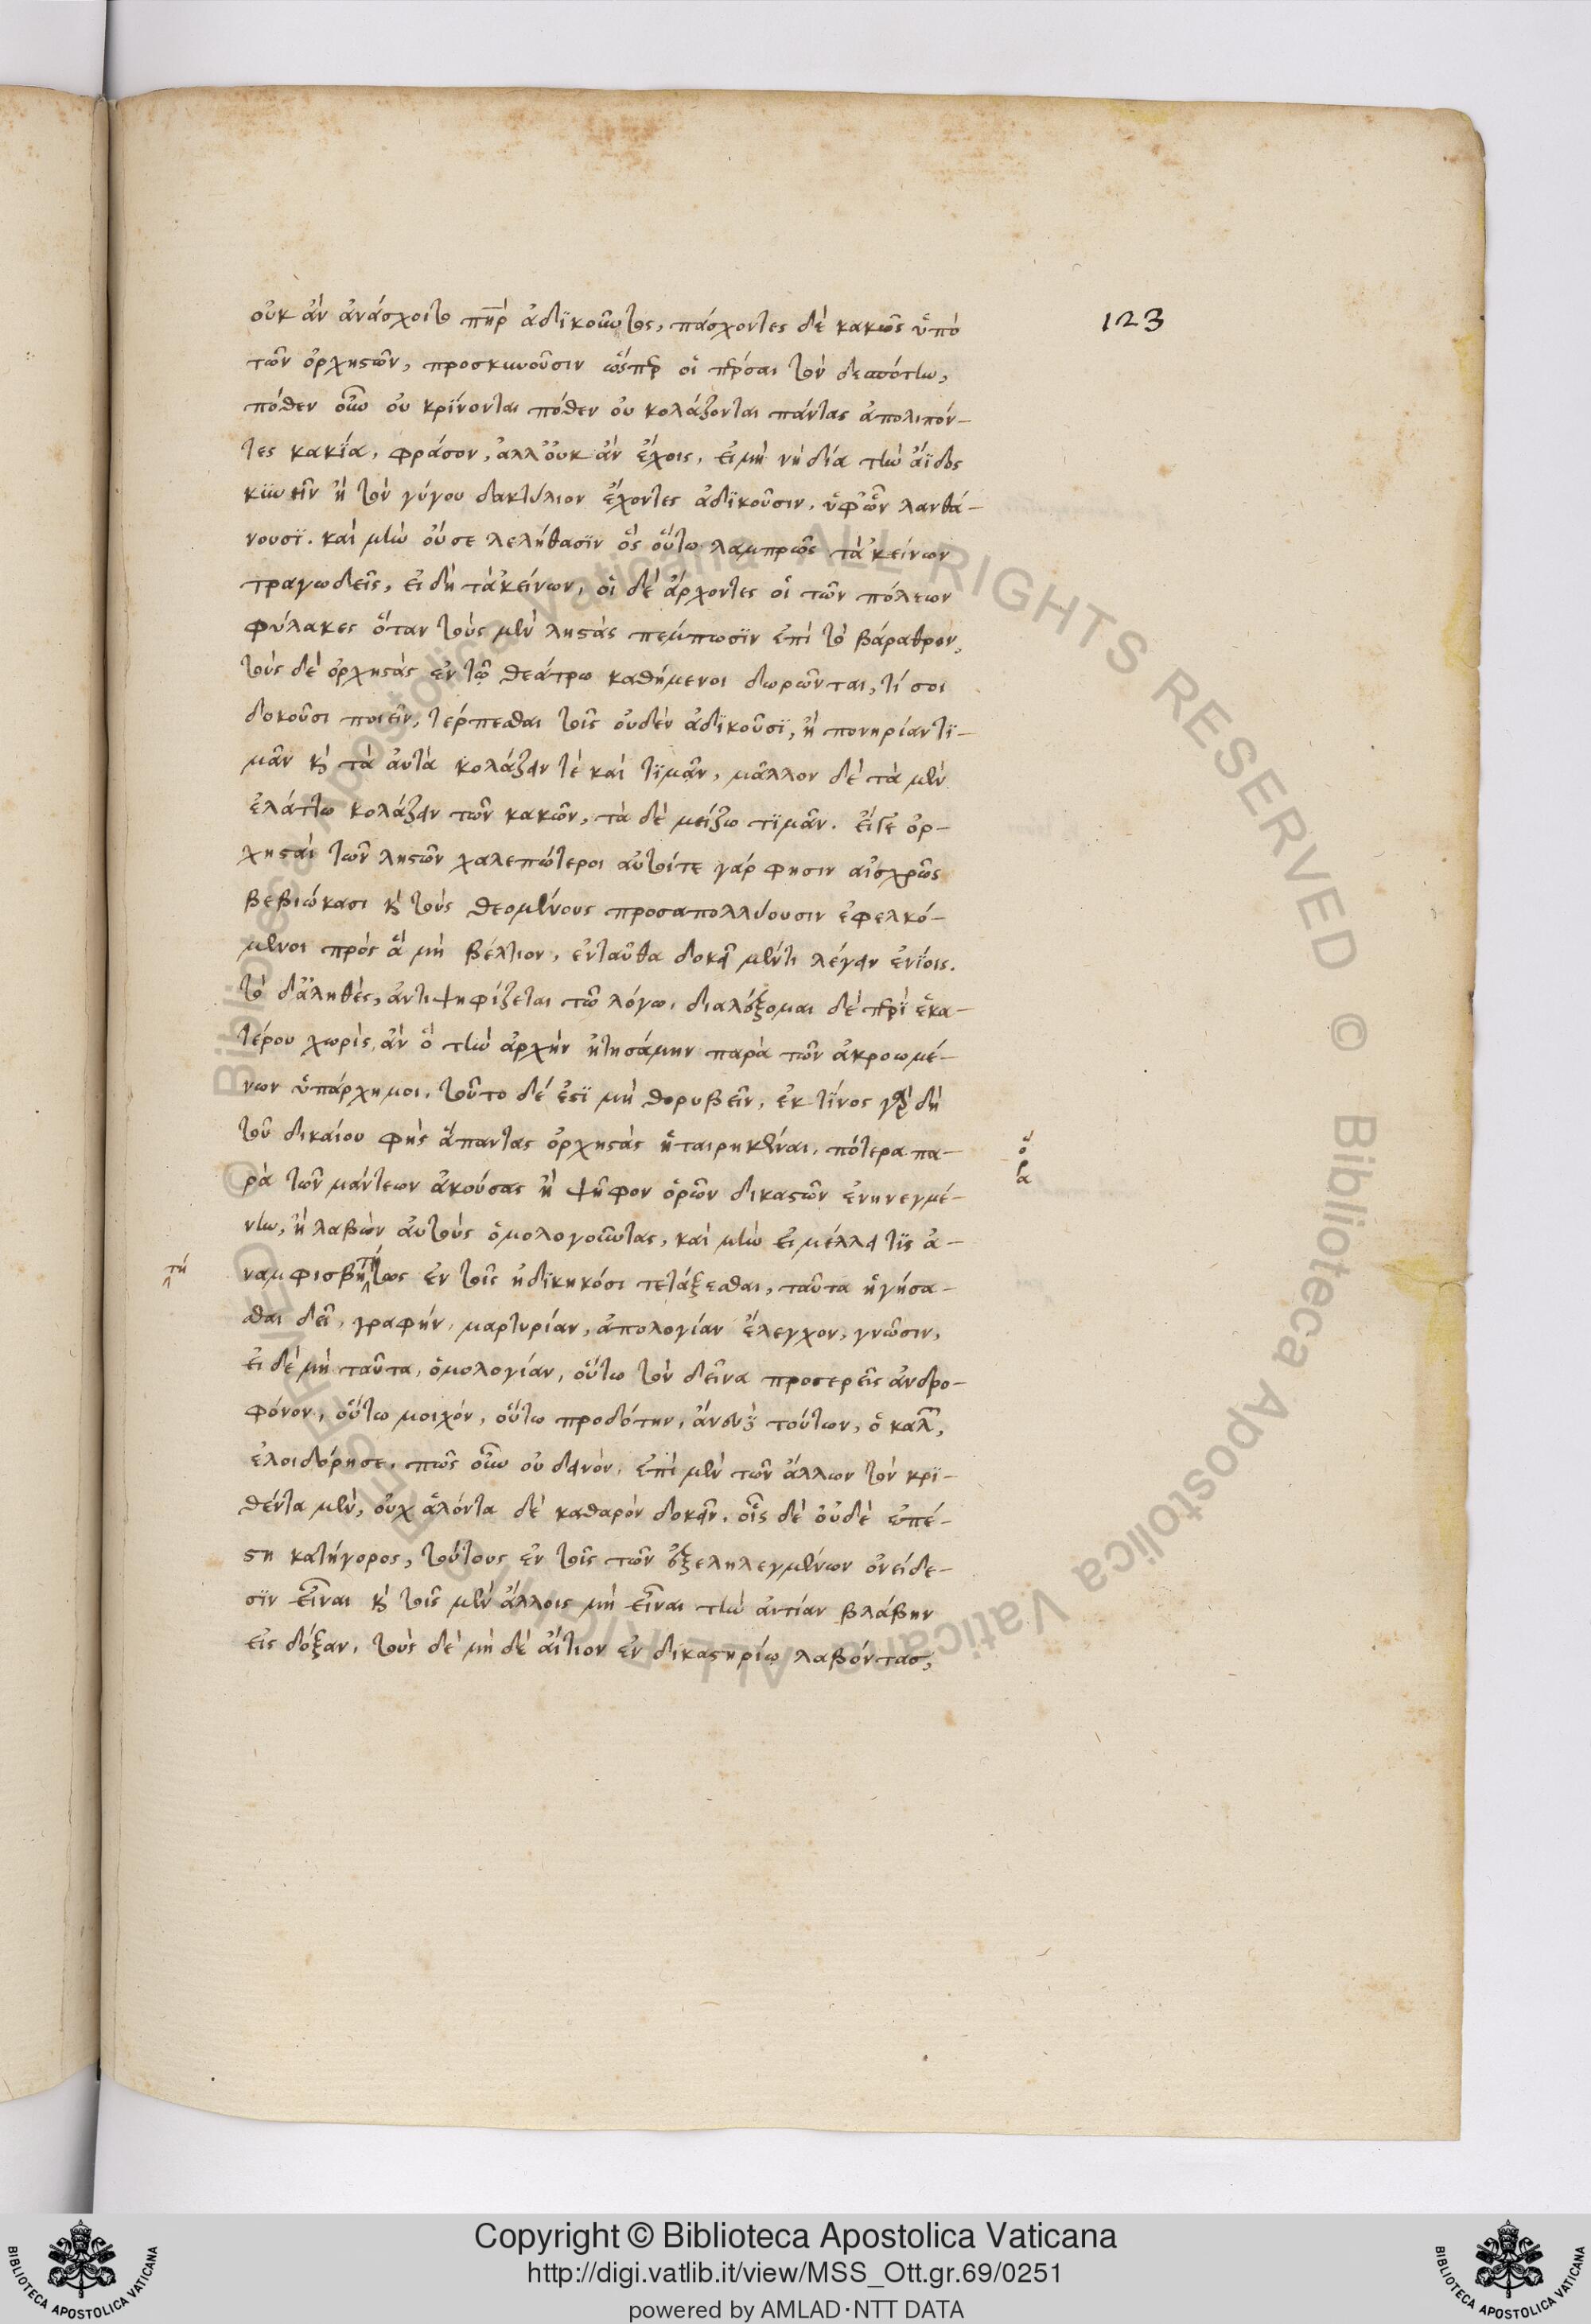 οὐκ ἂν ἀνάσχοιτο πηρ ἀδϊκοῦντος, πάσχοντες δὲ κακῶς ὑπὸ
τῶν ὀρχηστῶν, προσκυνοῦσιν ὥσπερ οἱ πέρσαι τὸν δεσπότην,
πόθεν οὖν οὐ κρίνονται πόθεν οὐ κολάζονται πάντας ἀπολιπόν-
τες κακΐα, φράσον, ἀλλ' οὐκ ἂν ἔχοις, εἰ μὴ νὴ δία τὴν ἄϊδος
κυνῆν ἢ τὸν γύγου δακτύλιον ἔχοντες ἀδϊκοῦσιν, ὑφ' ὧν λανθά-
νουσϊ. καὶ μὴν οὔ σε λελήθασϊν ὃς οὕτω λαμπρῶς τἀκείνων
τραγωδεῖς, εἰ δὴ τἀκείνων, οἱ δὲ ἄρχοντες οἱ τῶν πόλεων
φύλακες ὅταν τοὺς μὲν ληστὰς πέμπωσϊν ἐπὶ τὸ βάραθρον,
τοὺς δὲ ὀρχηστὰς ἐν τῷ θεάτρω καθήμενοι δωρῶνται, τί σοι
δοκοῦσι ποιεῖν, τέρπεσθαι τοῖς οὐδὲν ἀδϊκοῦσϊ, ἢ πονηρίαν τϊ-
μᾶν καὶ τὰ αὐτὰ κολάζειν τὲ καὶ τϊμᾶν, μᾶλλον δὲ τὰ μὲν
ἐλάττω κολάζειν τῶν κακῶν, τὰ δὲ μείζω τϊμᾶν. εἴγε ὀρ-
χησταὶ τῶν ληστῶν χαλεπώτεροι αὐτοί τε γάρ φησιν αἰσχρῶς
βεβιώκασι καὶ τοὺς θεομένους προσαπολλύουσιν ἐφελκό-
μενοι πρὸς ἃ μὴ βέλτιον, ἐνταῦθα δοκεῖ μέντι λέγειν ἐνΐοις.
τὸ δ' ἀληθὲς, ἀντιψηφίζεται τῶ λόγω, διαλέξομαι δὲ περὶ ἑκα-
τέρου χωρὶς, ἂν ὃ τὴν ἀρχὴν ἠτησάμην παρὰ τῶν ἀκροωμέ-
νων ὑπάρχη μοι, τοῦτο δέ ἐστϊ μὴ θορυβεῖν, ἐκ τίνος γὰρ δὴ
τοῦ δικαίου φὴς ἅπαντας ὀρχηστὰς ἡταιρηκέναι, πότερα πα-
ρὰ τῶν μάντεων ἀκούσας ἢ ψῆφον ὁρῶν δικαστῶν ἐνηνεγμέ-
νην, ἢ λαβὼν αὐτοὺς ὁμολογοῦντας, καὶ μὴν εἰ μέλλει τϊς ἀ-
ναμφισβητήτως ἐν τοῖς ἠδϊκηκόσι τετάξεσθαι, ταῦτα ἡγήσα-
σθαι δεῖ, γραφὴν, μαρτυρίαν, ἀπολογίαν ἔλεγχον, γνῶσιν,
εἰ δὲ μὴ ταῦτα, ὁμολογίαν, οὕτω τὸν δεῖνα προσερεῖς ἀνδρο-
φόνον, οὕτω μοιχόν, οὕτω προδότην, ἄνευ τούτων, ὁ καλῶν,
ἐλοιδόρησε, πῶς οὖν οὐ δεινὸν, ἐπὶ μὲν τῶν ἄλλων τὸν κρϊ-
θέντα μὲν, οὐχ ἁλόντα δὲ καθαρὸν δοκεῖν, οἷς δὲ οὐδὲ ἐπέ-
στη κατήγορος, τούτους ἐν τοῖς τῶν ἐξεληλεγμένων ὀνείδε-
σϊν εἶναι καὶ τοῖς μὲν ἄλλοις μὴ εἶναι τὴν αἰτίαν βλάβην
εἰς δόξαν, τοὺς δὲ μὴ δὲ αἴτιον ἐν δικαστηρίω λαβόντας,
123
τή
Copyright © Biblioteca Apostolica Vaticana
http://digi.vatlib.it/view/MSS_Ott.gr.69/0251
powered by AMLAD·NTT DATA
BIBLIOTECA APOSTOLICA VATICANA
BIBLIOTECA APOSTOLICA VATICANA
© Biblioteca Apostolica Vaticana ALL RIGHTS RESERVED
© Biblioteca Apostolica Vaticana ALL RIGHTS RESERVED